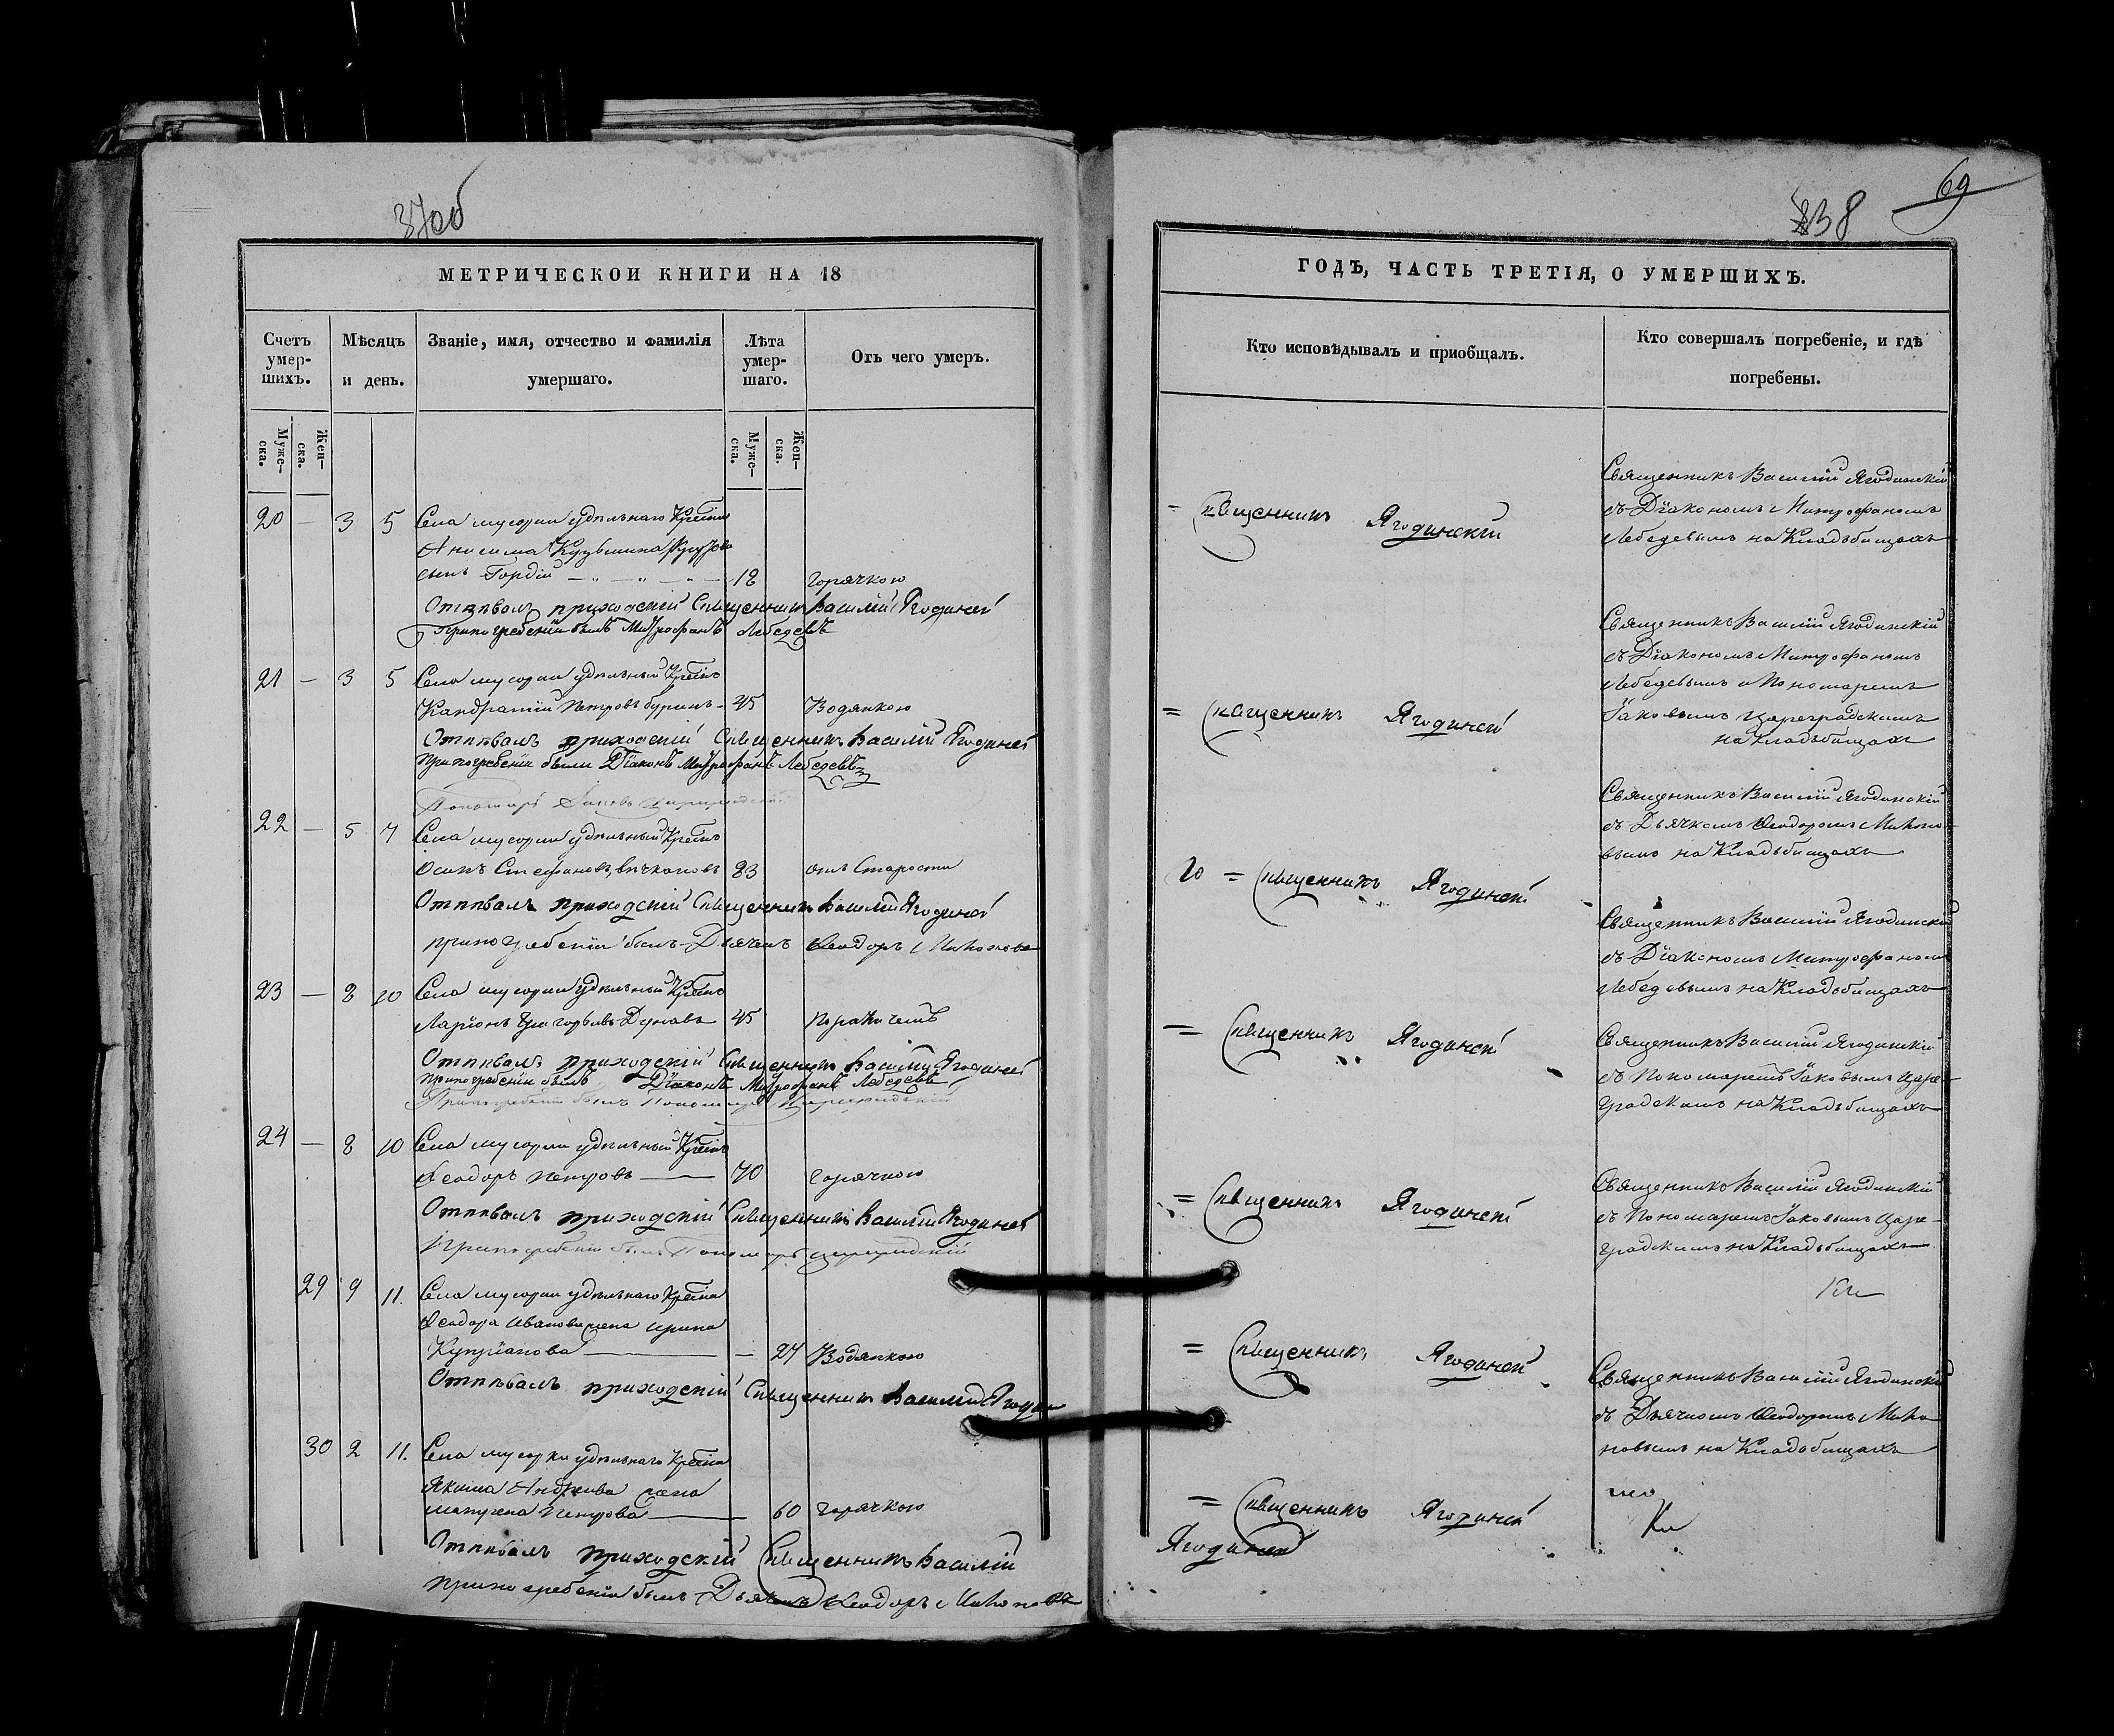 37об
МЕТРИЧЕСКОИ КНИГИ НА 18
Счетъ умер-шихъ.
Мѣсяцъ и день.
Званіе, имя, отчество и фамилія умершаго.
Лѣта умер-шаго.
Отъ чего умеръ.
Муже-ска.
Жен-ска.
Муже-ска.
Жен-ска.
20 — 3 5 Села мусорки удѣльнаго Крестьян
Анисима Кузьмина
сынъ Гордій — 18 горячкою
Отпѣвалъ приходскій Священникъ Василій Ягодинскій
При погребеніи былъ Митрофанъ Лебедевъ
21 — 3 5 Села мусорки удѣльный Крестьян
Кандратій Петровъ буринъ — 45 Водянкою
Отпѣвалъ приходскій Священникъ Василій Ягодинскій
При погребеніи были Діаконъ Митрофанъ Лебедевъ
Пономарь Іаковъ Цареградскій
22 — 5 7 Села мусорки удѣльный Крестьян
Осипъ Стефановъ 83 отъ Старости
Отпѣвалъ приходскій Священникъ Василій Ягодинскій
при погребеніи былъ Дьячекъ Ѳеодоръ Миконовъ
23 — 8 10 Села мусорки удѣльный Крестьян
Ларіонъ Григорьевъ 45 параличемъ
Отпѣвалъ приходскій Священникъ Василій Ягодинскій
При погребеніи былъ Діаконъ Митрофанъ Лебедевъ
При погребеніи былъ Пономарь Цареградскій
24 — 8 10 Села мусорки удѣльный Крестьян
Ѳеодоръ Петровъ — 70 горячкою
Отпѣвалъ приходскій Священникъ Василій Ягодинскій
При погребеніи былъ Пономарь Цареградскій
29 9 11. Села мусорки удѣльнаго Крестьяна
Ѳеодора Иванова жена Ирина
Купріанова — 27 Водянкою
Отпѣвалъ приходскій Священникъ Василій Ягодин
30 2 11. Села мусорки удѣльнаго Крестьяна
Якима Андреева жена
матрена Петрова — 60 горячкою
Отпѣвалъ приходскій Священникъ Василій
При погребеніи былъ Дьячекъ Ѳеодоръ Миконовъ
69
38
ГОДЪ, ЧАСТЬ ТРЕТІЯ, О УМЕРШИХЪ.
Кто исповѣдывалъ и приобщалъ.
Кто совершалъ погребеніе, и гдѣ погребены.
= Священникъ Ягодинскій
Священникъ Василій Ягодинскій
съ Діакономъ Митрофаномъ
Лебедевымъ на Кладьбищахъ
= Священникъ Ягодинскій
Священникъ Василій Ягодинскій
съ Діакономъ Митрофаномъ
Лебедевымъ и Пономаремъ
Іаковымъ Цареградскимъ
на Кладьбищахъ
= Священникъ Ягодинскій
Священникъ Василій Ягодинскій
съ Дьячкомъ Ѳеодоромъ Миконо-
вымъ на Кладьбищахъ
= Священникъ Ягодинскій
Священникъ Василій Ягодинскій
съ Діакономъ Митрофаномъ
Лебедевымъ на Кладьбищахъ
= Священникъ Ягодинскій
Священникъ Василій Ягодинскій
съ Пономаремъ Іаковымъ Царе-
градскимъ на Кладьбищахъ
= Священникъ Ягодинскій
Священникъ Василій Ягодинскій
съ Пономаремъ Іаковымъ Царе-
градскимъ на Кладьбищахъ
= Священникъ Ягодинскій
Ягодинскій
Священникъ Василій Ягодинскій
съ Дьячкомъ Ѳеодоромъ Мико
новымъ на Кладьбищахъ